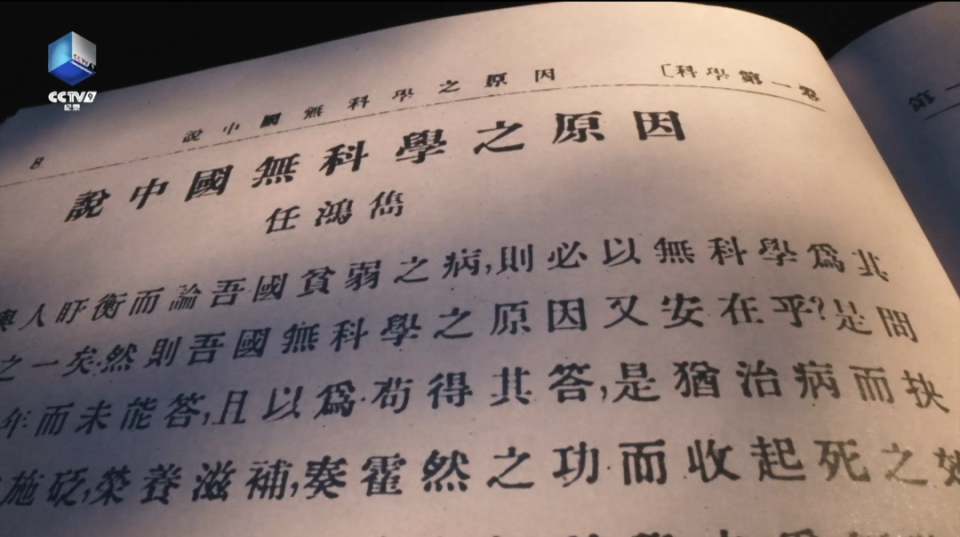 CCTV9
纪录
8 說中國無科學之原因 [科學第一卷
第一
說中國無科學之原因
任鴻雋
與人盱衡而論吾國貧弱之病,則必以無科學爲其
之一矣.然則吾國無科學之原因又安在乎?是問
年而未能答,且以爲.苟得其答,是猶治病而抉
施砭,榮養滋補,奏霍然之功而收起死之效